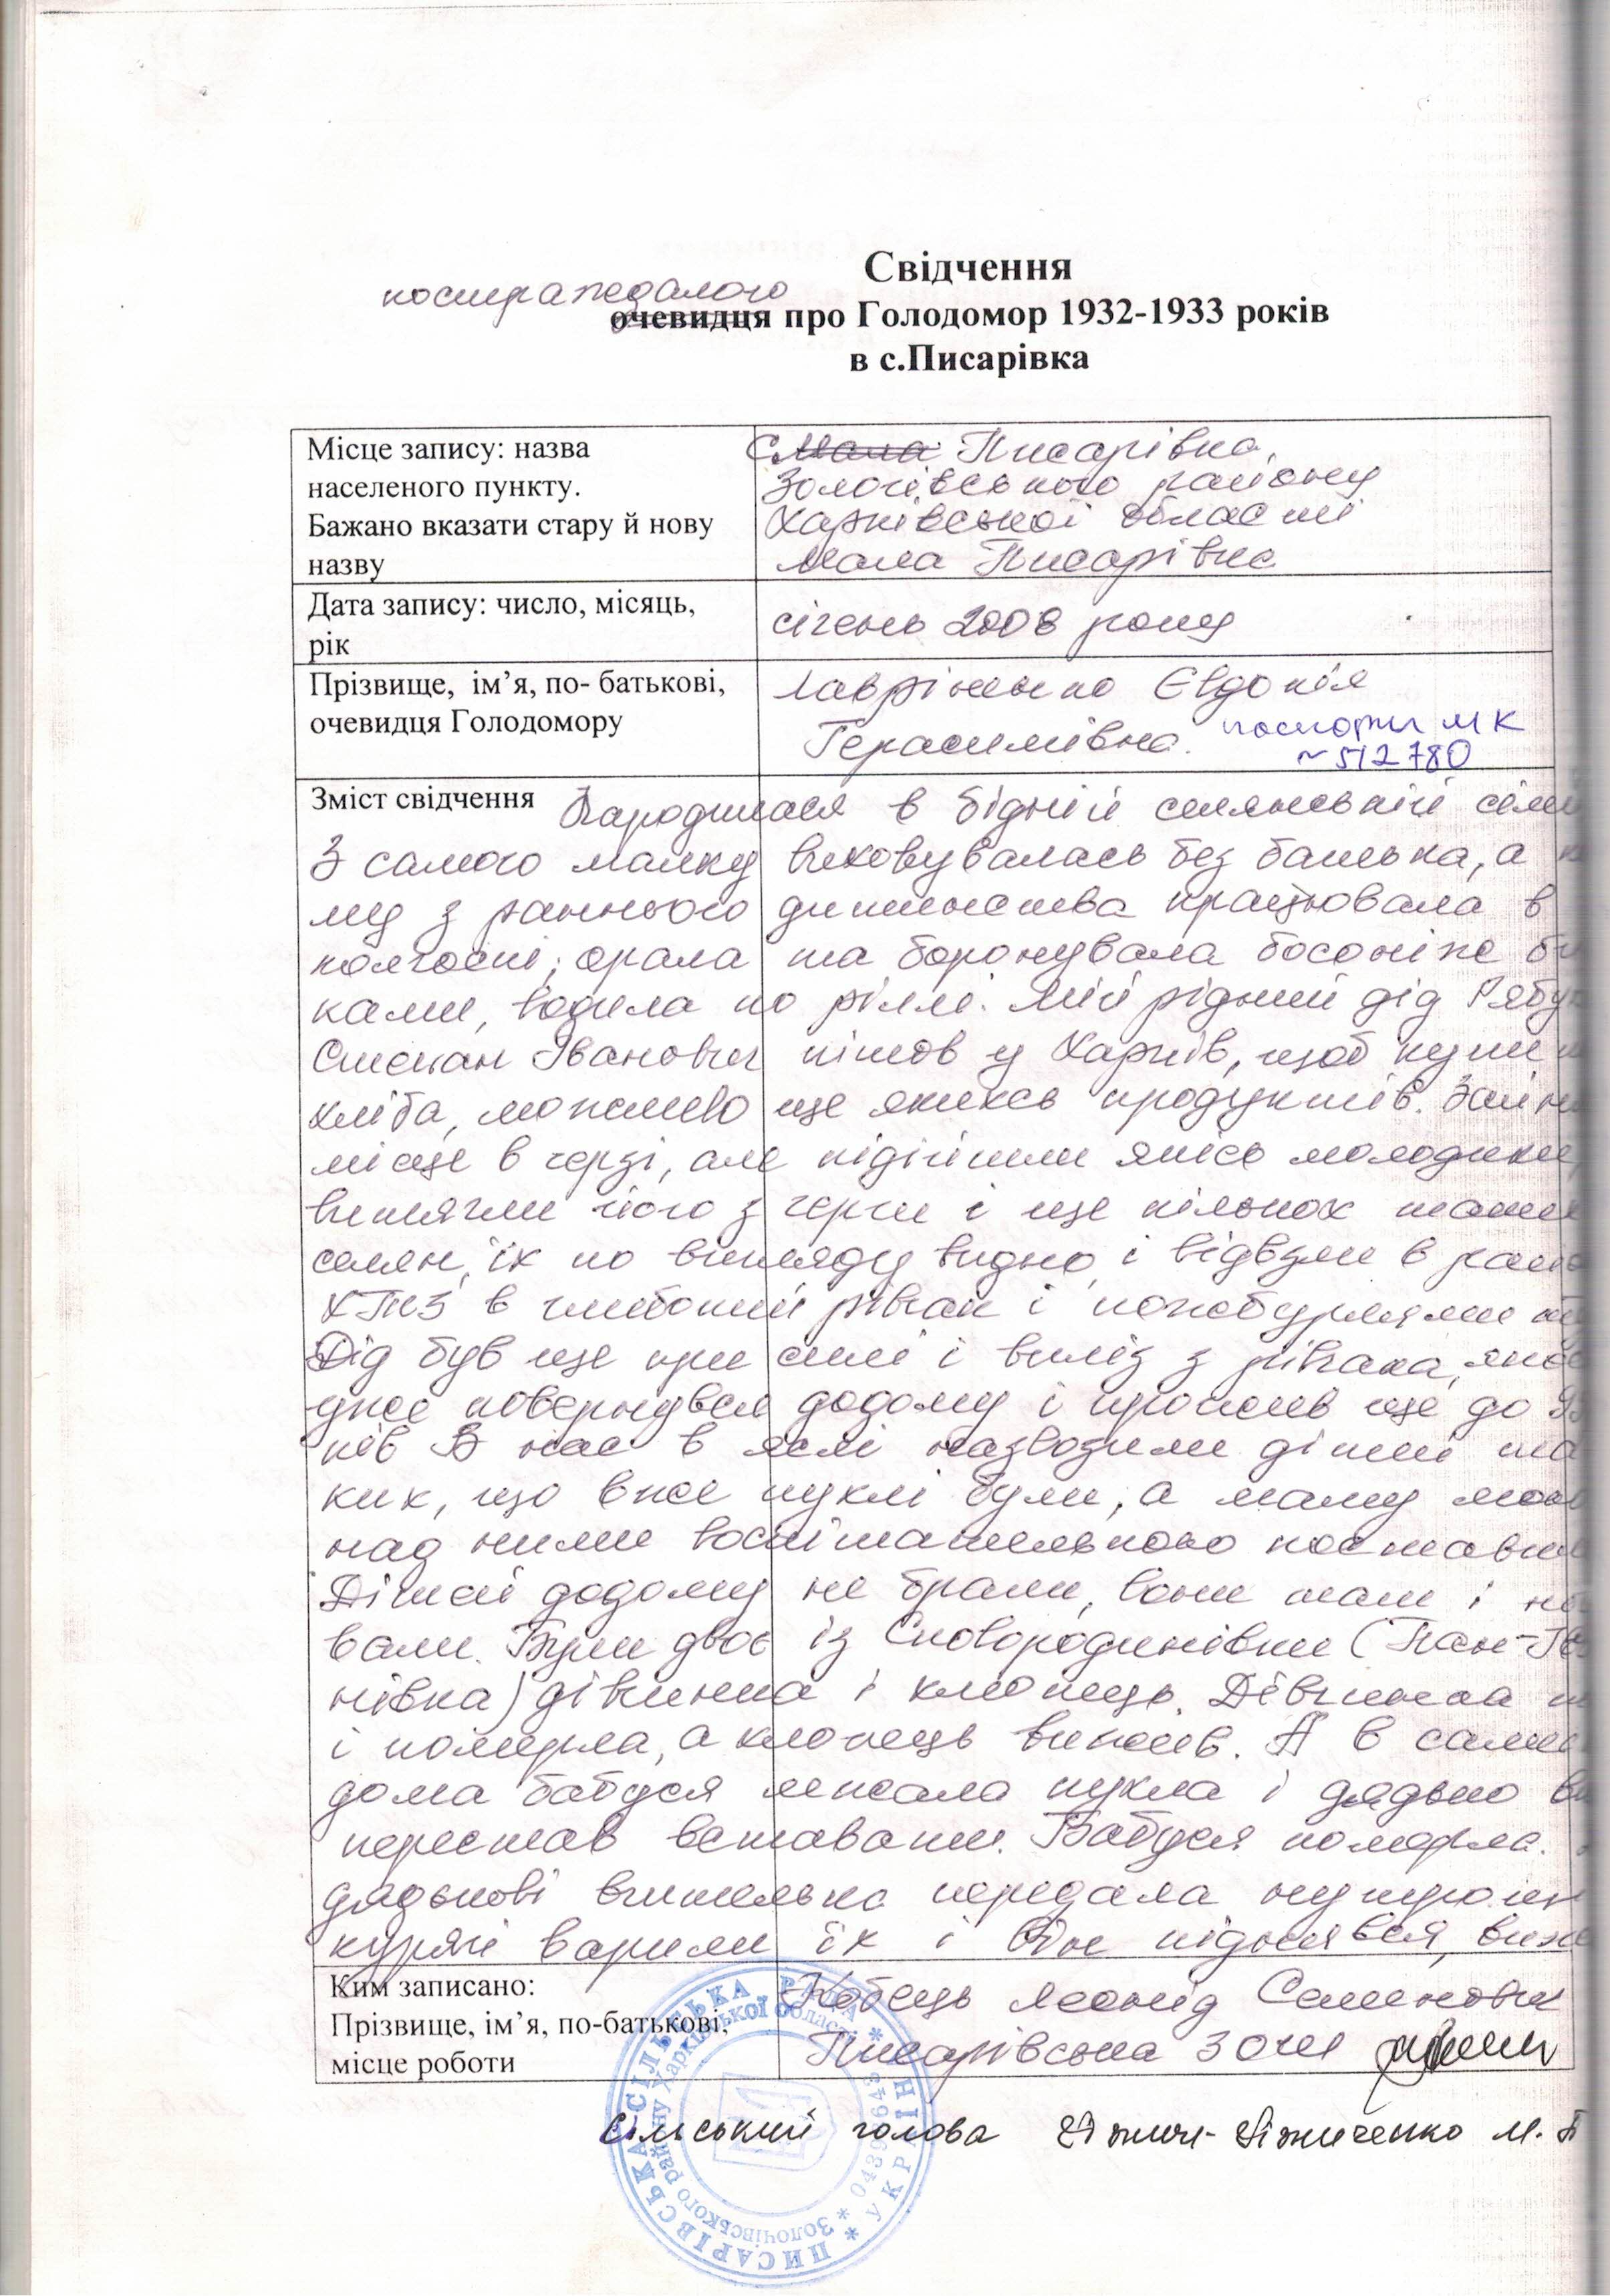 Свідчення
постраждалого
очевидця про Голодомор 1932-1933 років
в с.Писарівка
Місце запису: назва населеного пункту.
Бажано вказати стару й нову назву
с Мала Писарівка,
Золочівського району
Харківської області
Мала Писарівка
Дата запису: число, місяць, рік
січень 2008 року
Прізвище, ім’я, по- батькові, очевидця Голодомору
Лавріненко Євдокія
Герасимівна. паспорт МК
~ 512780
Зміст свідчення Народилася в бідній селянській сім
З самого малку виховувалась без батька, а
му з раннього дитинства працювала в
колгоспі; орала та боронувала босоніж би
ками, водила по ріллі. Мій рідний дід Рябу
Степан Іванович пішов у Харків, щоб купи
хліба, можливо ще якихсь продуктів. Зайн
місце в черзі, але підійшли якісь молодики,
витягли його з черги і ще кількох таких
селян, їх по вигляду видно, і відвзли в рай
ХТЗ в глибокий рівчак і поскобурляли
Дід був ще при силі і виліз з рівчака, якос
уже повернувся додому і прожив ще до
ків В нас в ясліназвозили дітей та
ких, що вже пухлі були, а маму мою
над ними воспітателькою поставил
Дітей додому не брали, вони там і
вали. Були двоє із Сковородинівки (Пан-Іва
нівка) дівчинка і хлопець. Дівчинка
і померла, а хлопець вижив. А в самих
дома бабуся лежала пухла і дядько
перестав вставати. Бабуся померла.
дядькові вчителька передала
курячі варили їх і він піднявся, виж
Ким записано:
Прізвище, ім’я, по-батькові, місце роботи
Кобець Леонід Семенович
Писарівська ЗОШ
Сільський голова Діжиченко М.
ПИСАРІВСЬКА СІЛЬСЬКА РАДА * УКРАЇНА *
Золочівського району Харківської області